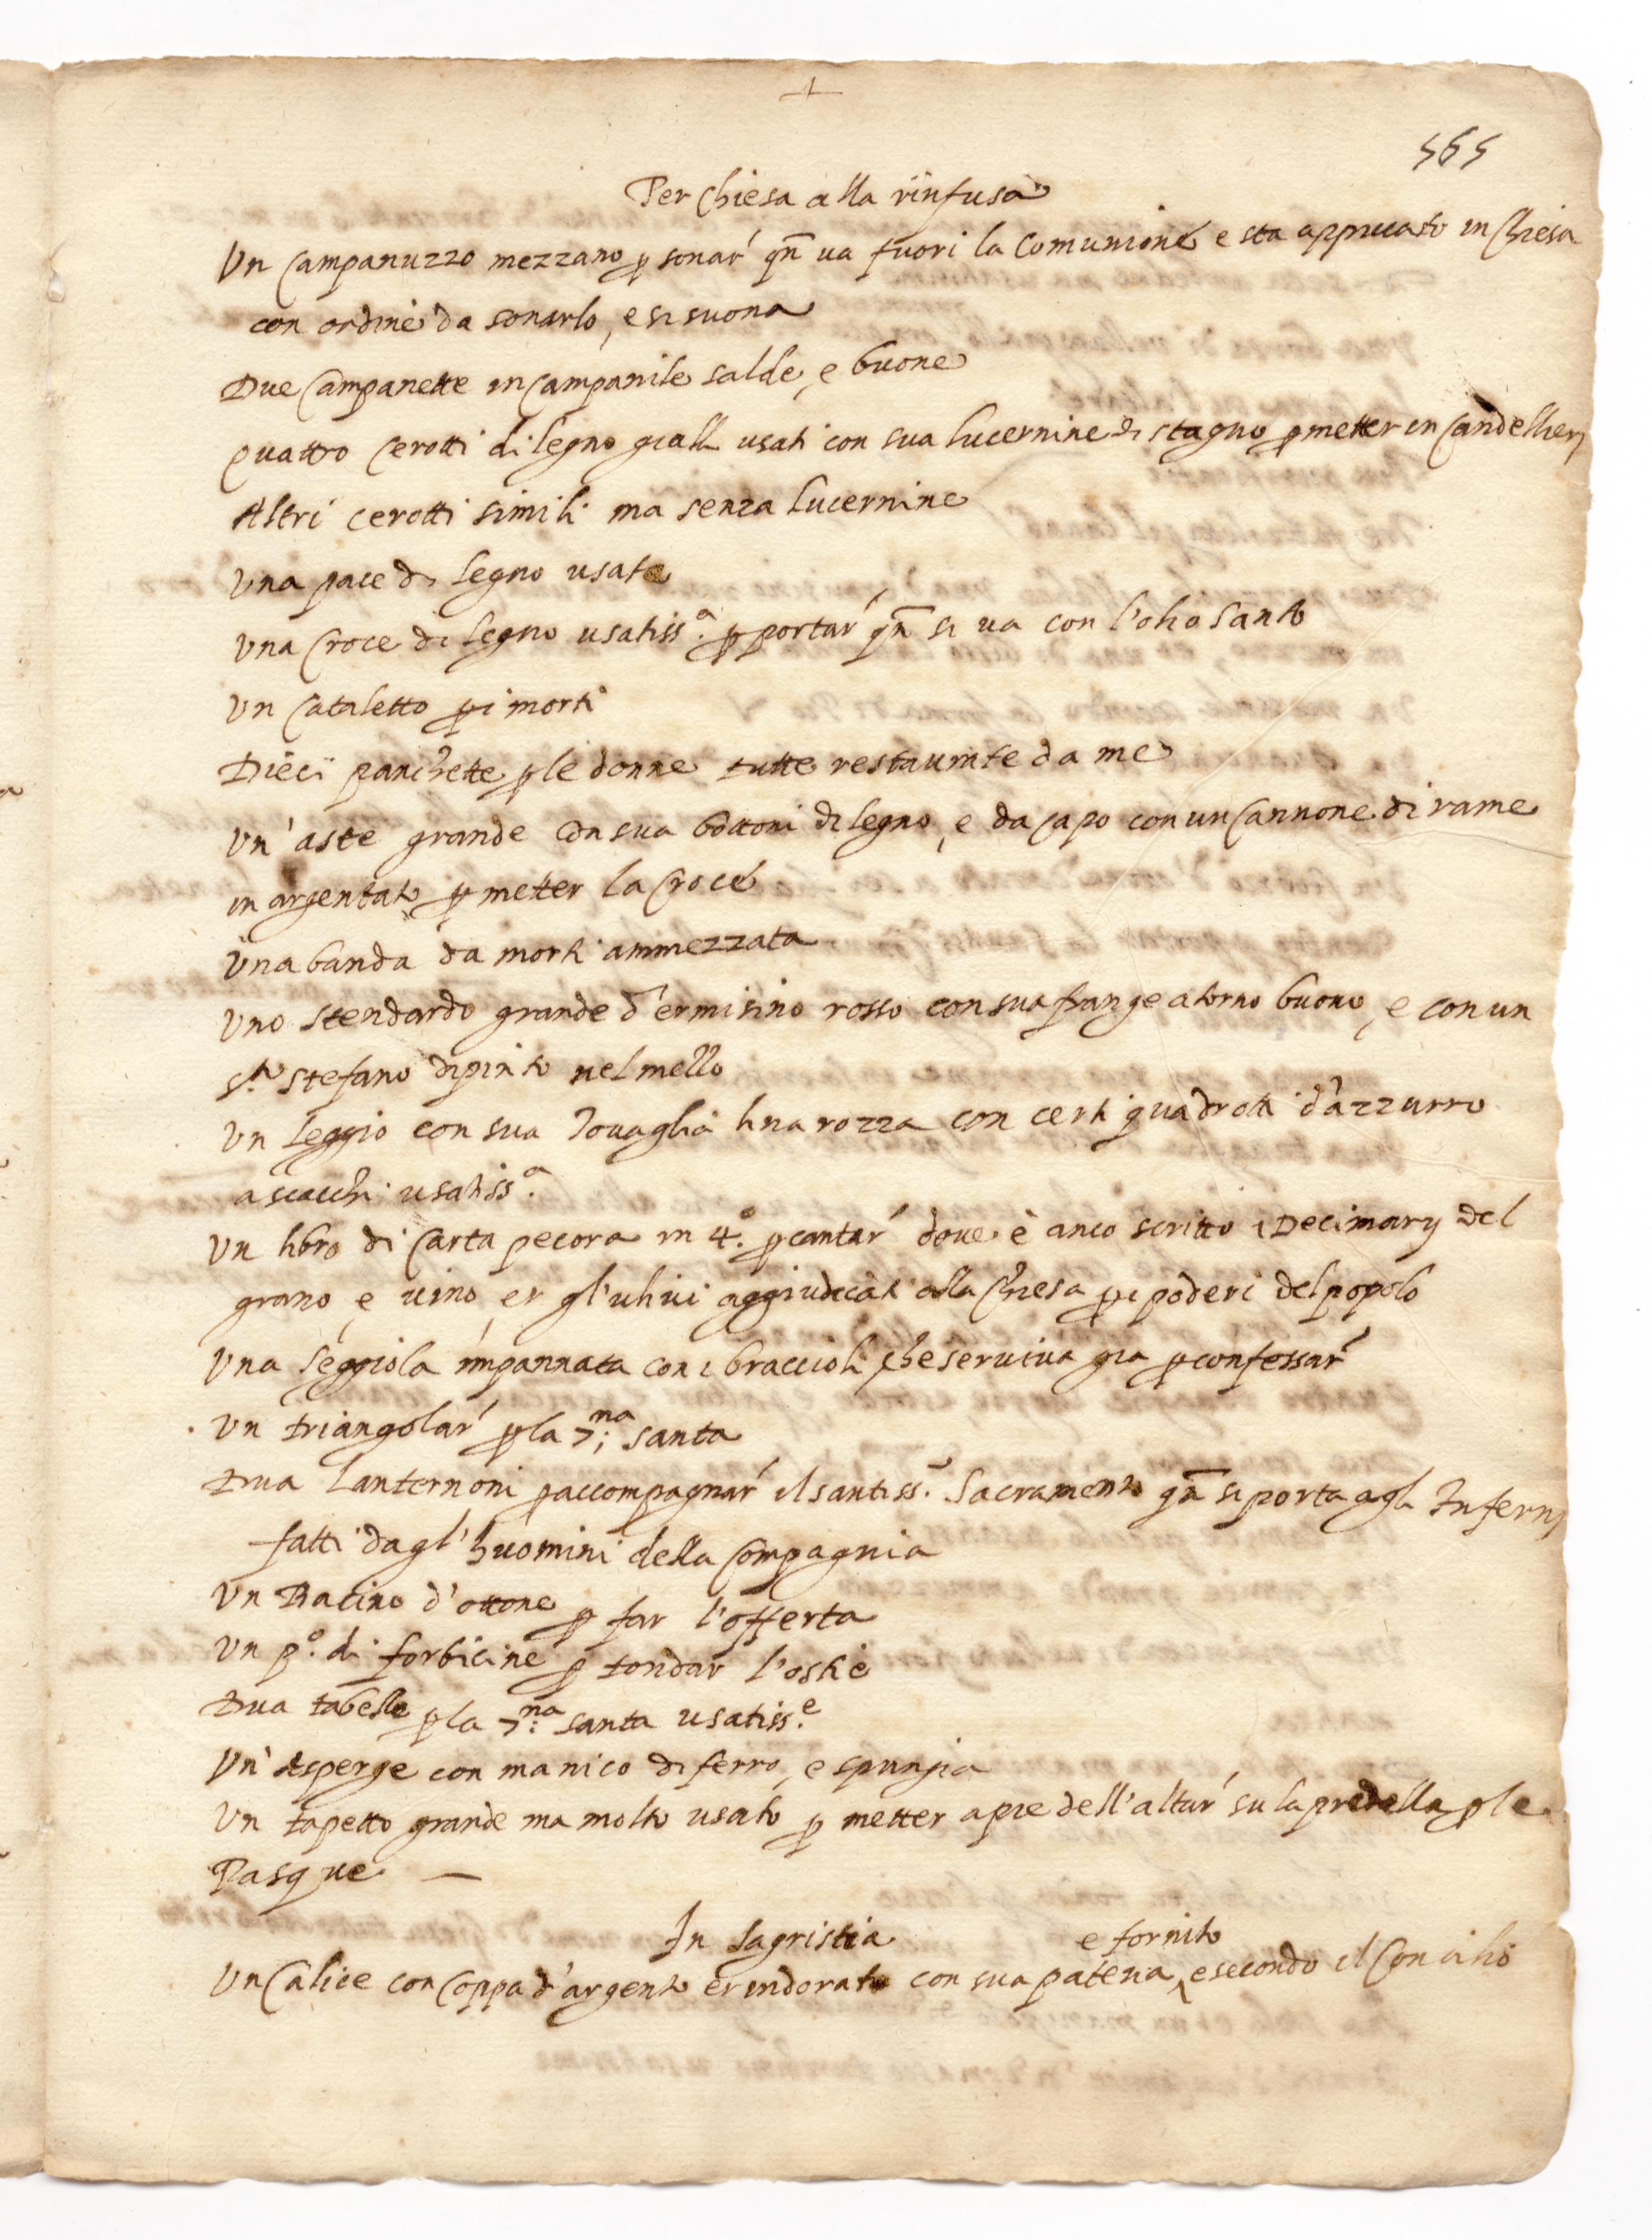 565
Per Chiesa alla rinfusa
Un Campanuzzo mezzano p sonar' qn̄ va fuori la Comunione e sta appiccato in Chiesa
con ordine da sonarlo, e si suona
Due Campanette in Campanile salde, e buone
Quattro Cerotti di legno gialli usati con sua lucernine di stagno p metter in Candellieri
Altri cerotti simili ma senza lucernine
Una pace di legno usata
Una Croce di legno usatiss.ᵃ p portar' qn̄ si va con l'olio Santo
Un Cataletto p i morti
Dieci panchette p le donne tutte restaurate da me
Un'aste grande con sua bottoni di legno, e da capo con un Cannone di rame
in argentato p metter la Croce
Una banda da morti ammezzata
Uno stendardo grande d'ermisino rosso con sua frange atorno buono, e con un
S.ᵗᵒ Stefano dipinto nel mello
Un leggio con sua Tovaglia lina rozza con certi quadrotti d'azzurro
a scacchi usatiss.ᵃ
Un libro di Carta pecora in 4.º p cantar' dove è anco scritto i Decimarij del
grano, e vino, et gl'ulivi aggiudicati alla Chiesa p i poderi del popolo
Una seggiola impannata con i braccioli che serviva gia p confessar'
Un triangolar' p la 7.ⁿᵃ santa
Dua Lanternoni p accompagnar' il santiss.º Sacramento qn̄ si porta agli Infermj
fatti dagl'huomini della Compagnia
Un Bacino d'ottone p far l'offerta
Un p.º di forbicine p tondar l'ostie
Dua tabelle p la 7.ⁿᵃ santa usatiss.ᵉ
Un'Asperge con manico di ferro, e spungia
Un tapetto grande ma molto usato p metter a pie dell'altar' su la predella p le
Pasque —
In Sagristia
e fornito
Un Calice con Coppa d'argento et indorato con sua patena ‸ e secondo il Concilio